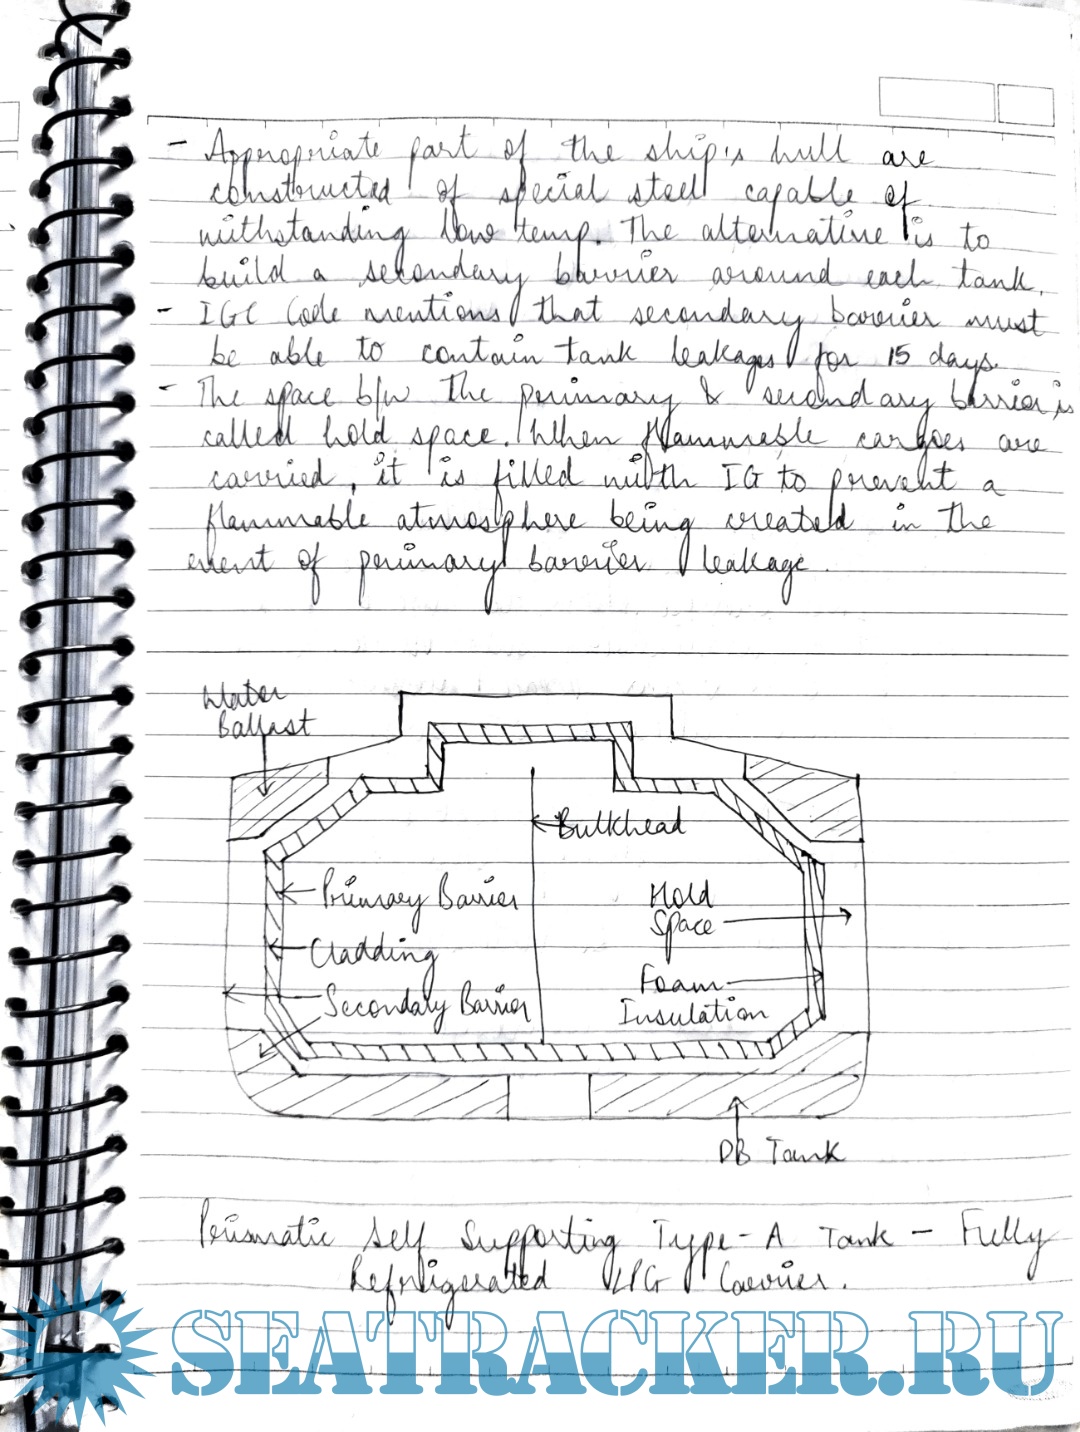 - Appropriate part of the ship's hull are
constructed of special steel capable of
withstanding low temp. The alternative is to
build a secondary barrier around each tank.
- IGC Code mentions that secondary barrier must
be able to contain tank leakages for 15 days.
- The space b/w the primary & secondary barrier is
called hold space. When flammable cargoes are
carried, it is filled with IG to prevent a
flammable atmosphere being created in the
event of primary barrier leakage.
Water
Ballast
Bulkhead
Primary Barrier
Hold
Space
Cladding
Foam
Insulation
Secondary Barrier
DB Tank
Prismatic Self Supporting Type-A Tank - Fully
Refrigerated LPG Carrier.
SEATRACKER.RU